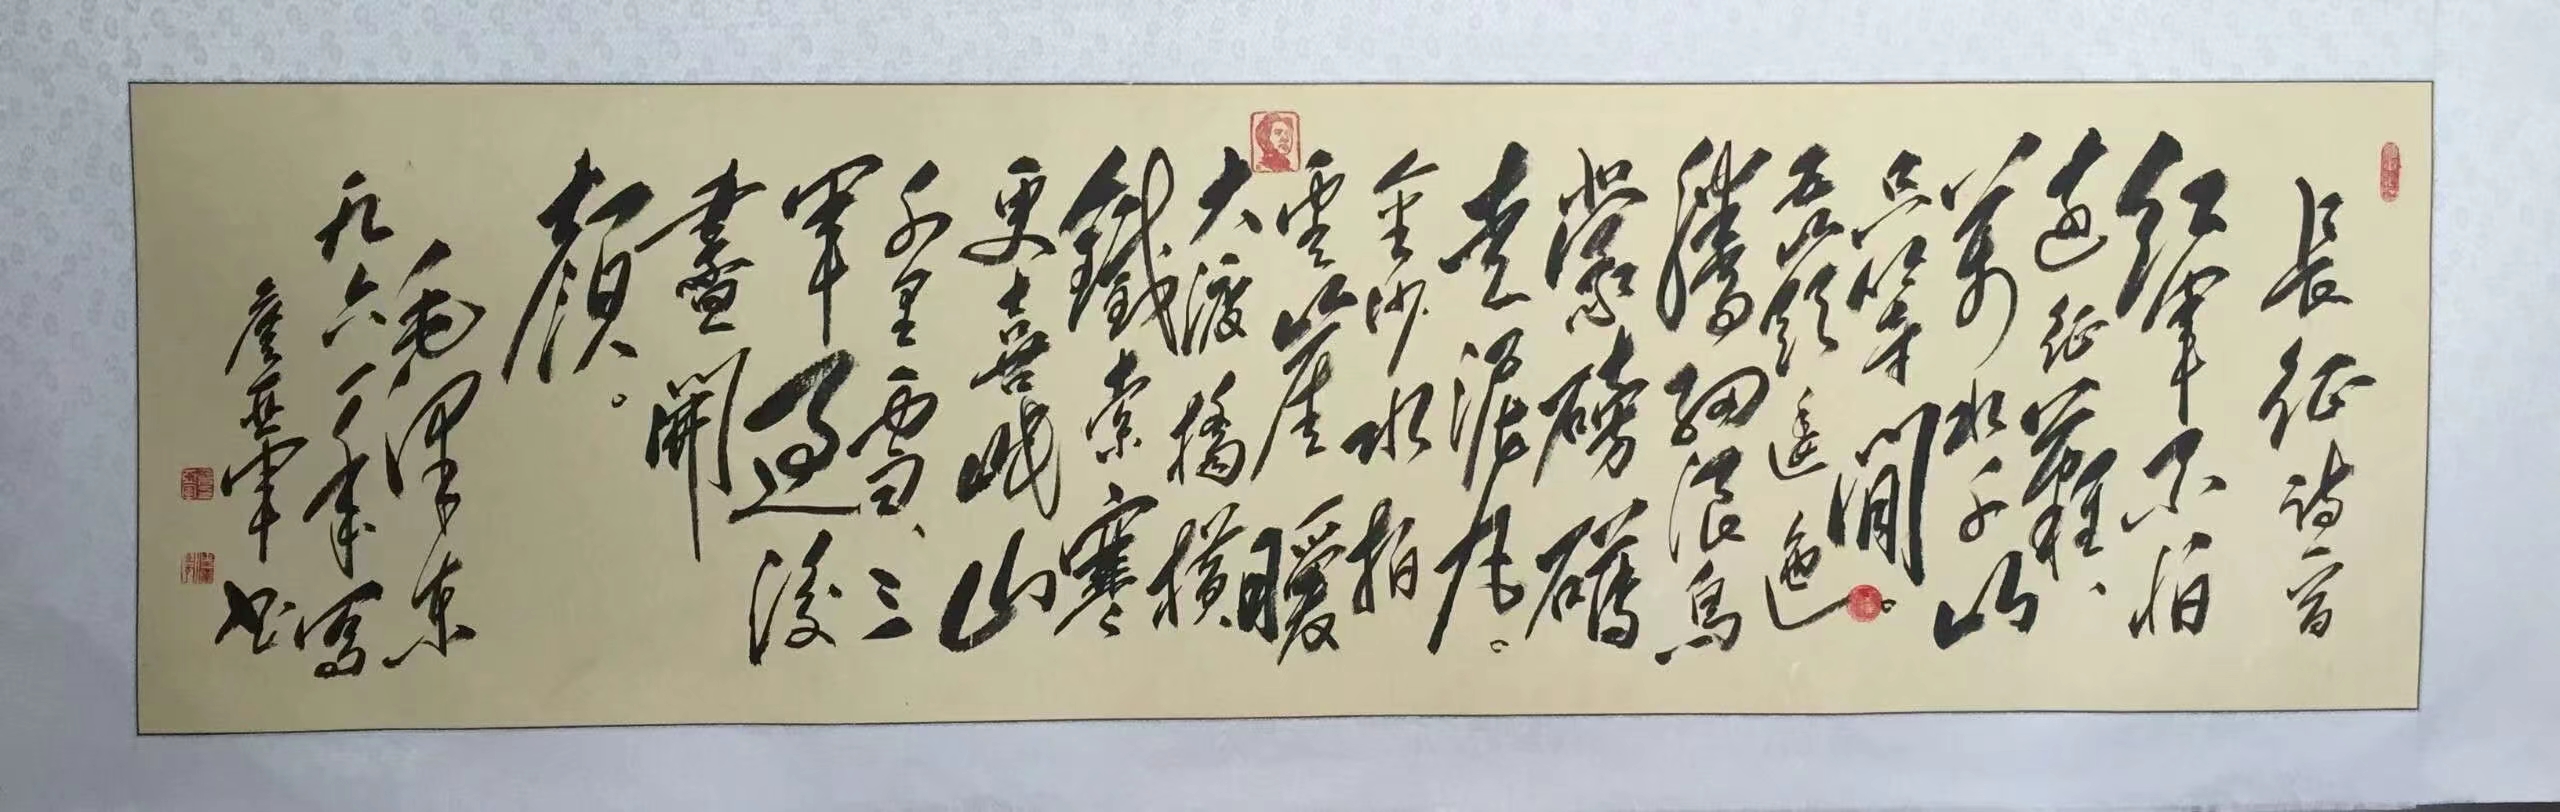 長征詩一首
红軍不怕
遠征難、
萬水千山
只等閒。
五嶺逶迤
騰細浪烏
蒙磅礴
走泥丸。
金沙水拍
雲崖暖
大渡橋橫
鐵索寒
更喜岷山
千里雪、三
軍過後
盡開
顏。
毛澤東
九六一年寫
亞軍书